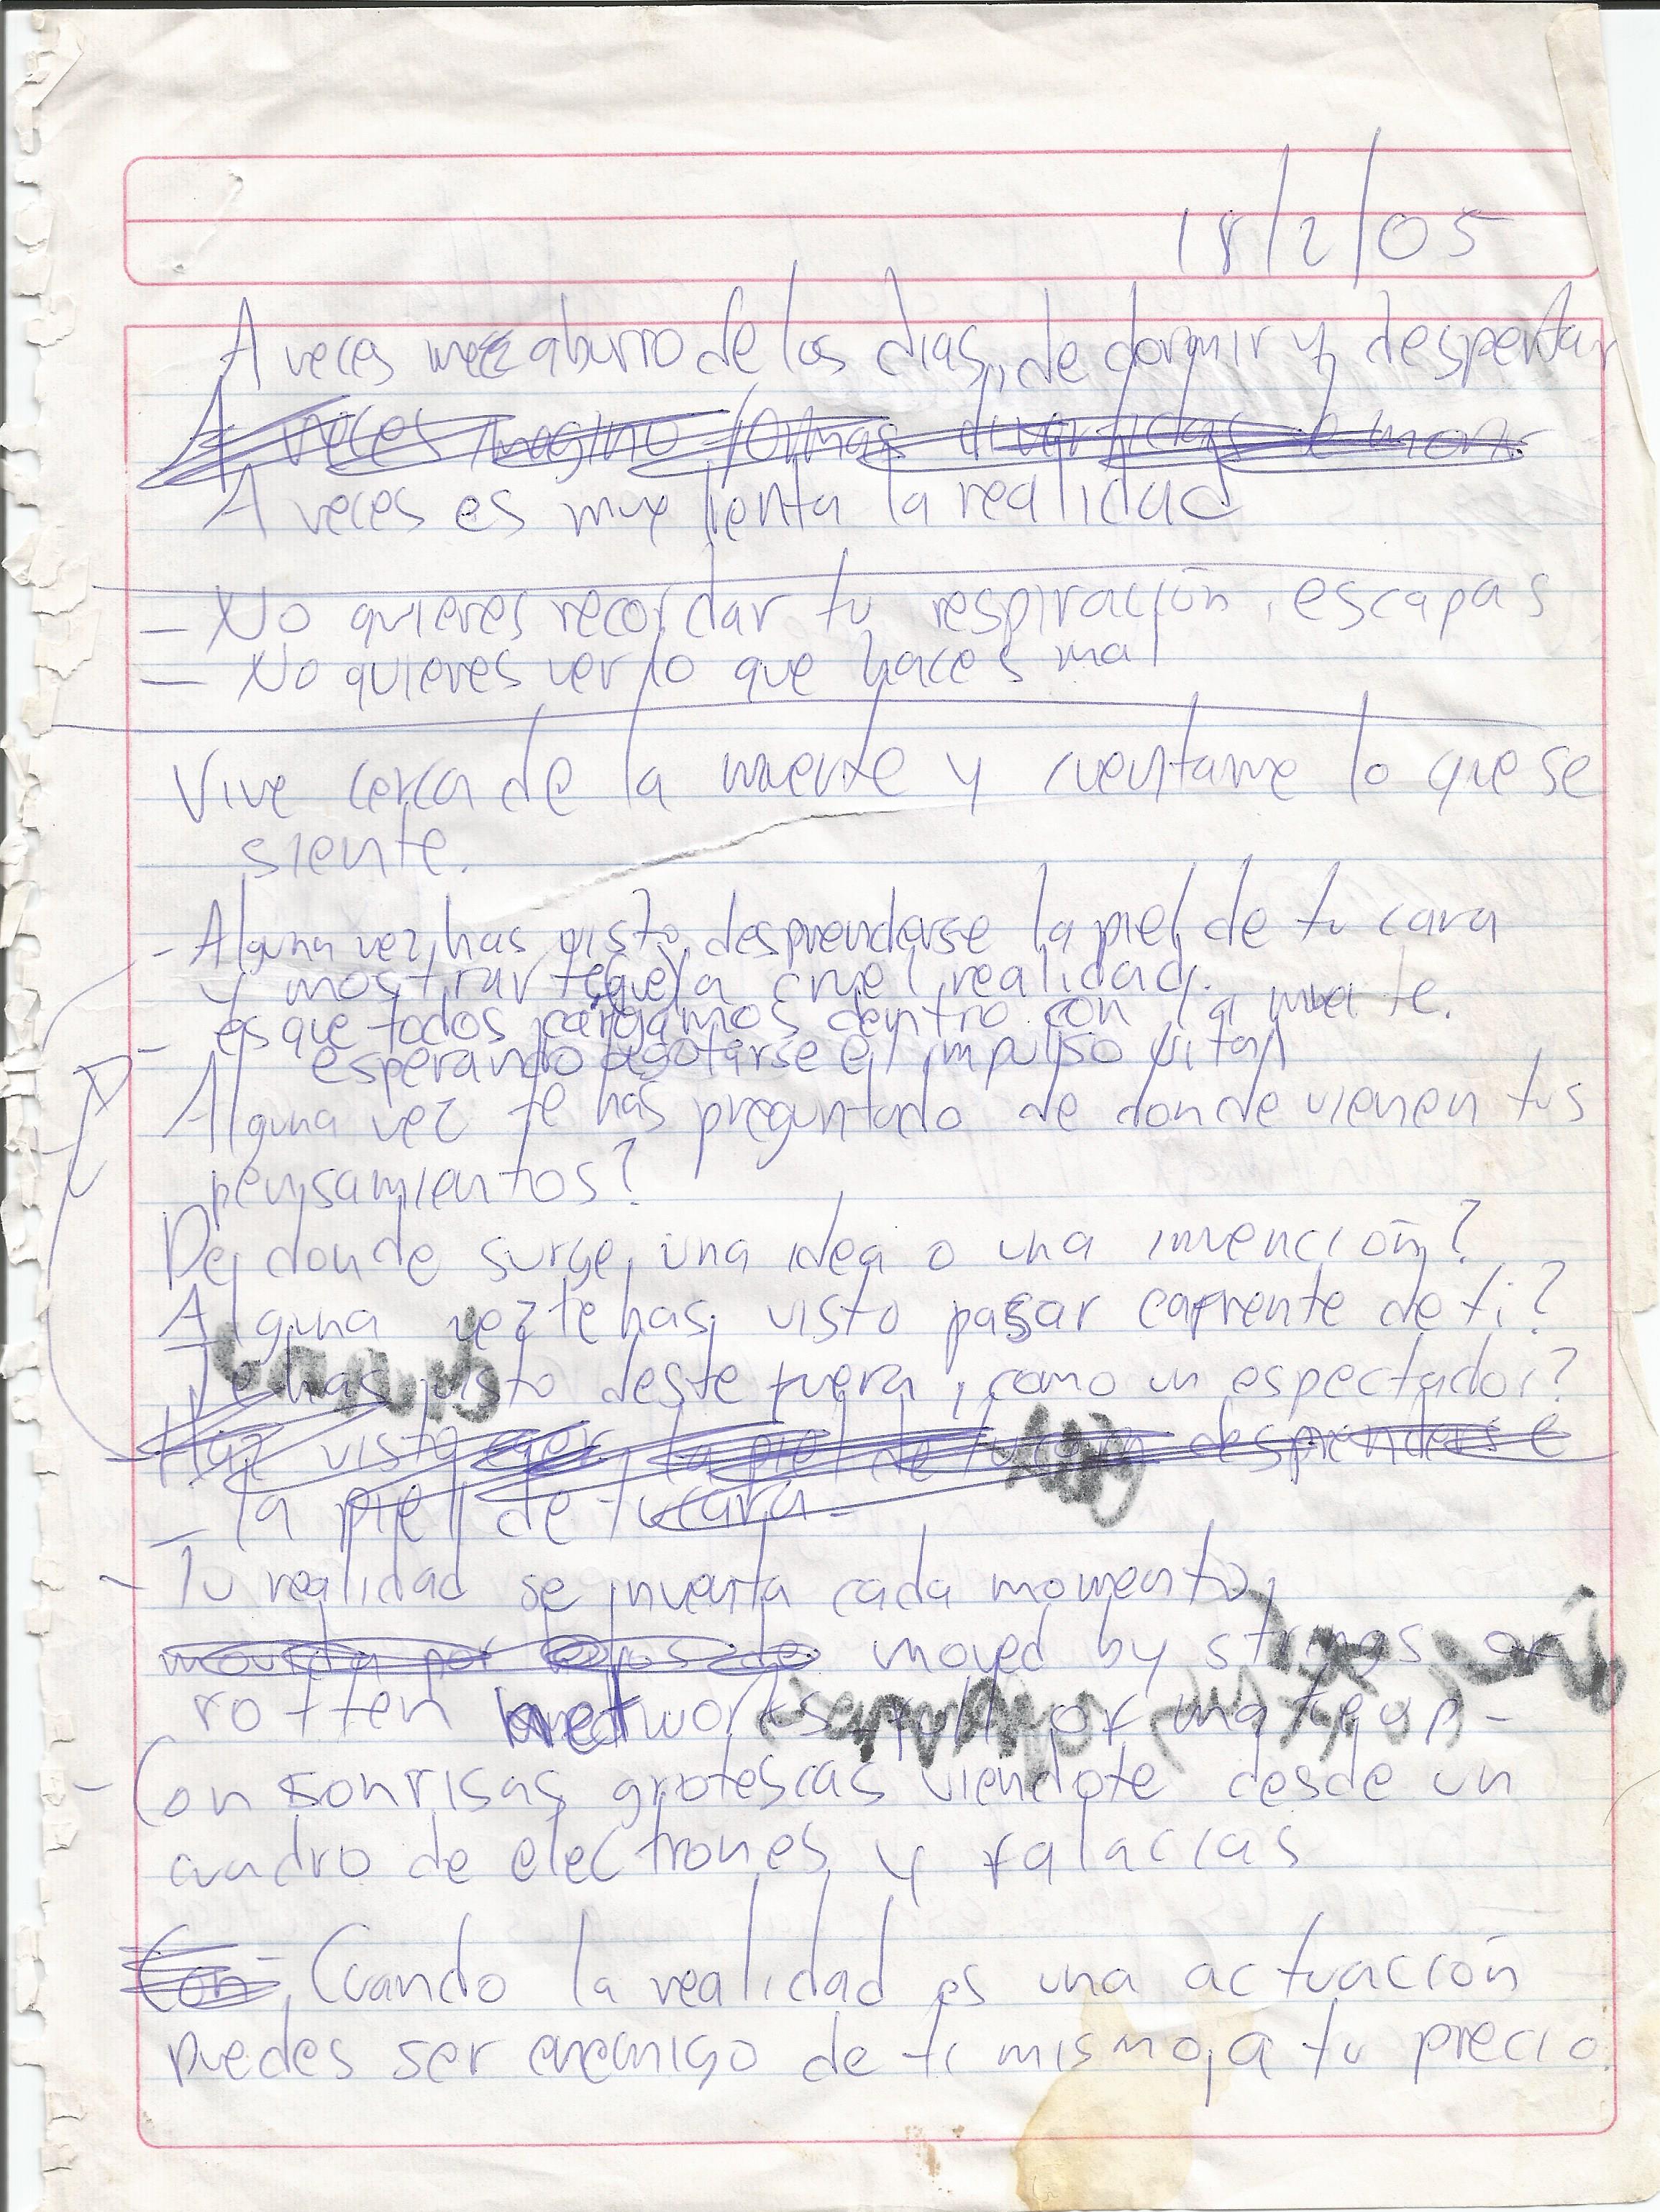 18/2/05
A veces me aburro de los dias, de dormir y despertar
A veces imagino formas divertidas de morir
A veces es muy lenta la realidad
- No quieres recordar tu respiración, escapas
- No quieres ver lo que haces mal
Vive cerca de la muerte y cuentame lo que se
siente.
- Alguna vez has visto desprenderse la piel de tu cara
y mostrarte la cruel realidad.
- es que todos cargamos dentro con la muerte.
esperando agotarse el impulso vital
Alguna vez te has preguntado de donde vienen tus
pensamientos?
De donde surge una idea o una invención?
Alguna vez te has visto pasar enfrente de ti?
Te has visto deste fuera, como un espectador?
Haz visto caer la piel de tu cara desprenderse
la piel de tu cara
- Tu realidad se inventa cada momento,
movida por de moved by strings or
rotten networks full of make up -
- Con sonrisas grotescas viendote desde un
cuadro de electrones y falacias
Con Cuando la realidad es una actuación
puedes ser enemigo de ti mismo, a tu precio.